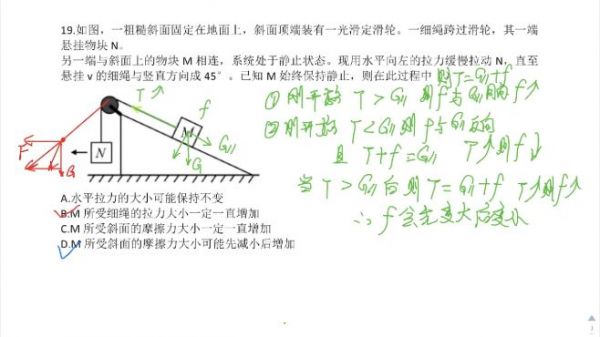 19.如图，一粗糙斜面固定在地面上，斜面顶端装有一光滑定滑轮。一细绳跨过滑轮，其一端
悬挂物块 N。
另一端与斜面上的物块 M 相连，系统处于静止状态。现用水平向左的拉力缓慢拉动 N，直至
悬挂 v 的细绳与竖直方向成 45°。已知 M 始终保持静止，则在此过程中 则T=G∥+f
① 刚开始 T>G∥ 则f与G∥同向 f↗
② 刚开始 T<G∥则f与G∥反向
且 T+f=G∥ T↗则f↓
当T>G∥后则T=G∥+f T↗则f↗
∴f会先变大后变小
T↗
f
M
G∥
G
F
N
G
A.水平拉力的大小可能保持不变
B.M 所受细绳的拉力大小一定一直增加
C.M 所受斜面的摩擦力大小一定一直增加
D.M 所受斜面的摩擦力大小可能先减小后增加